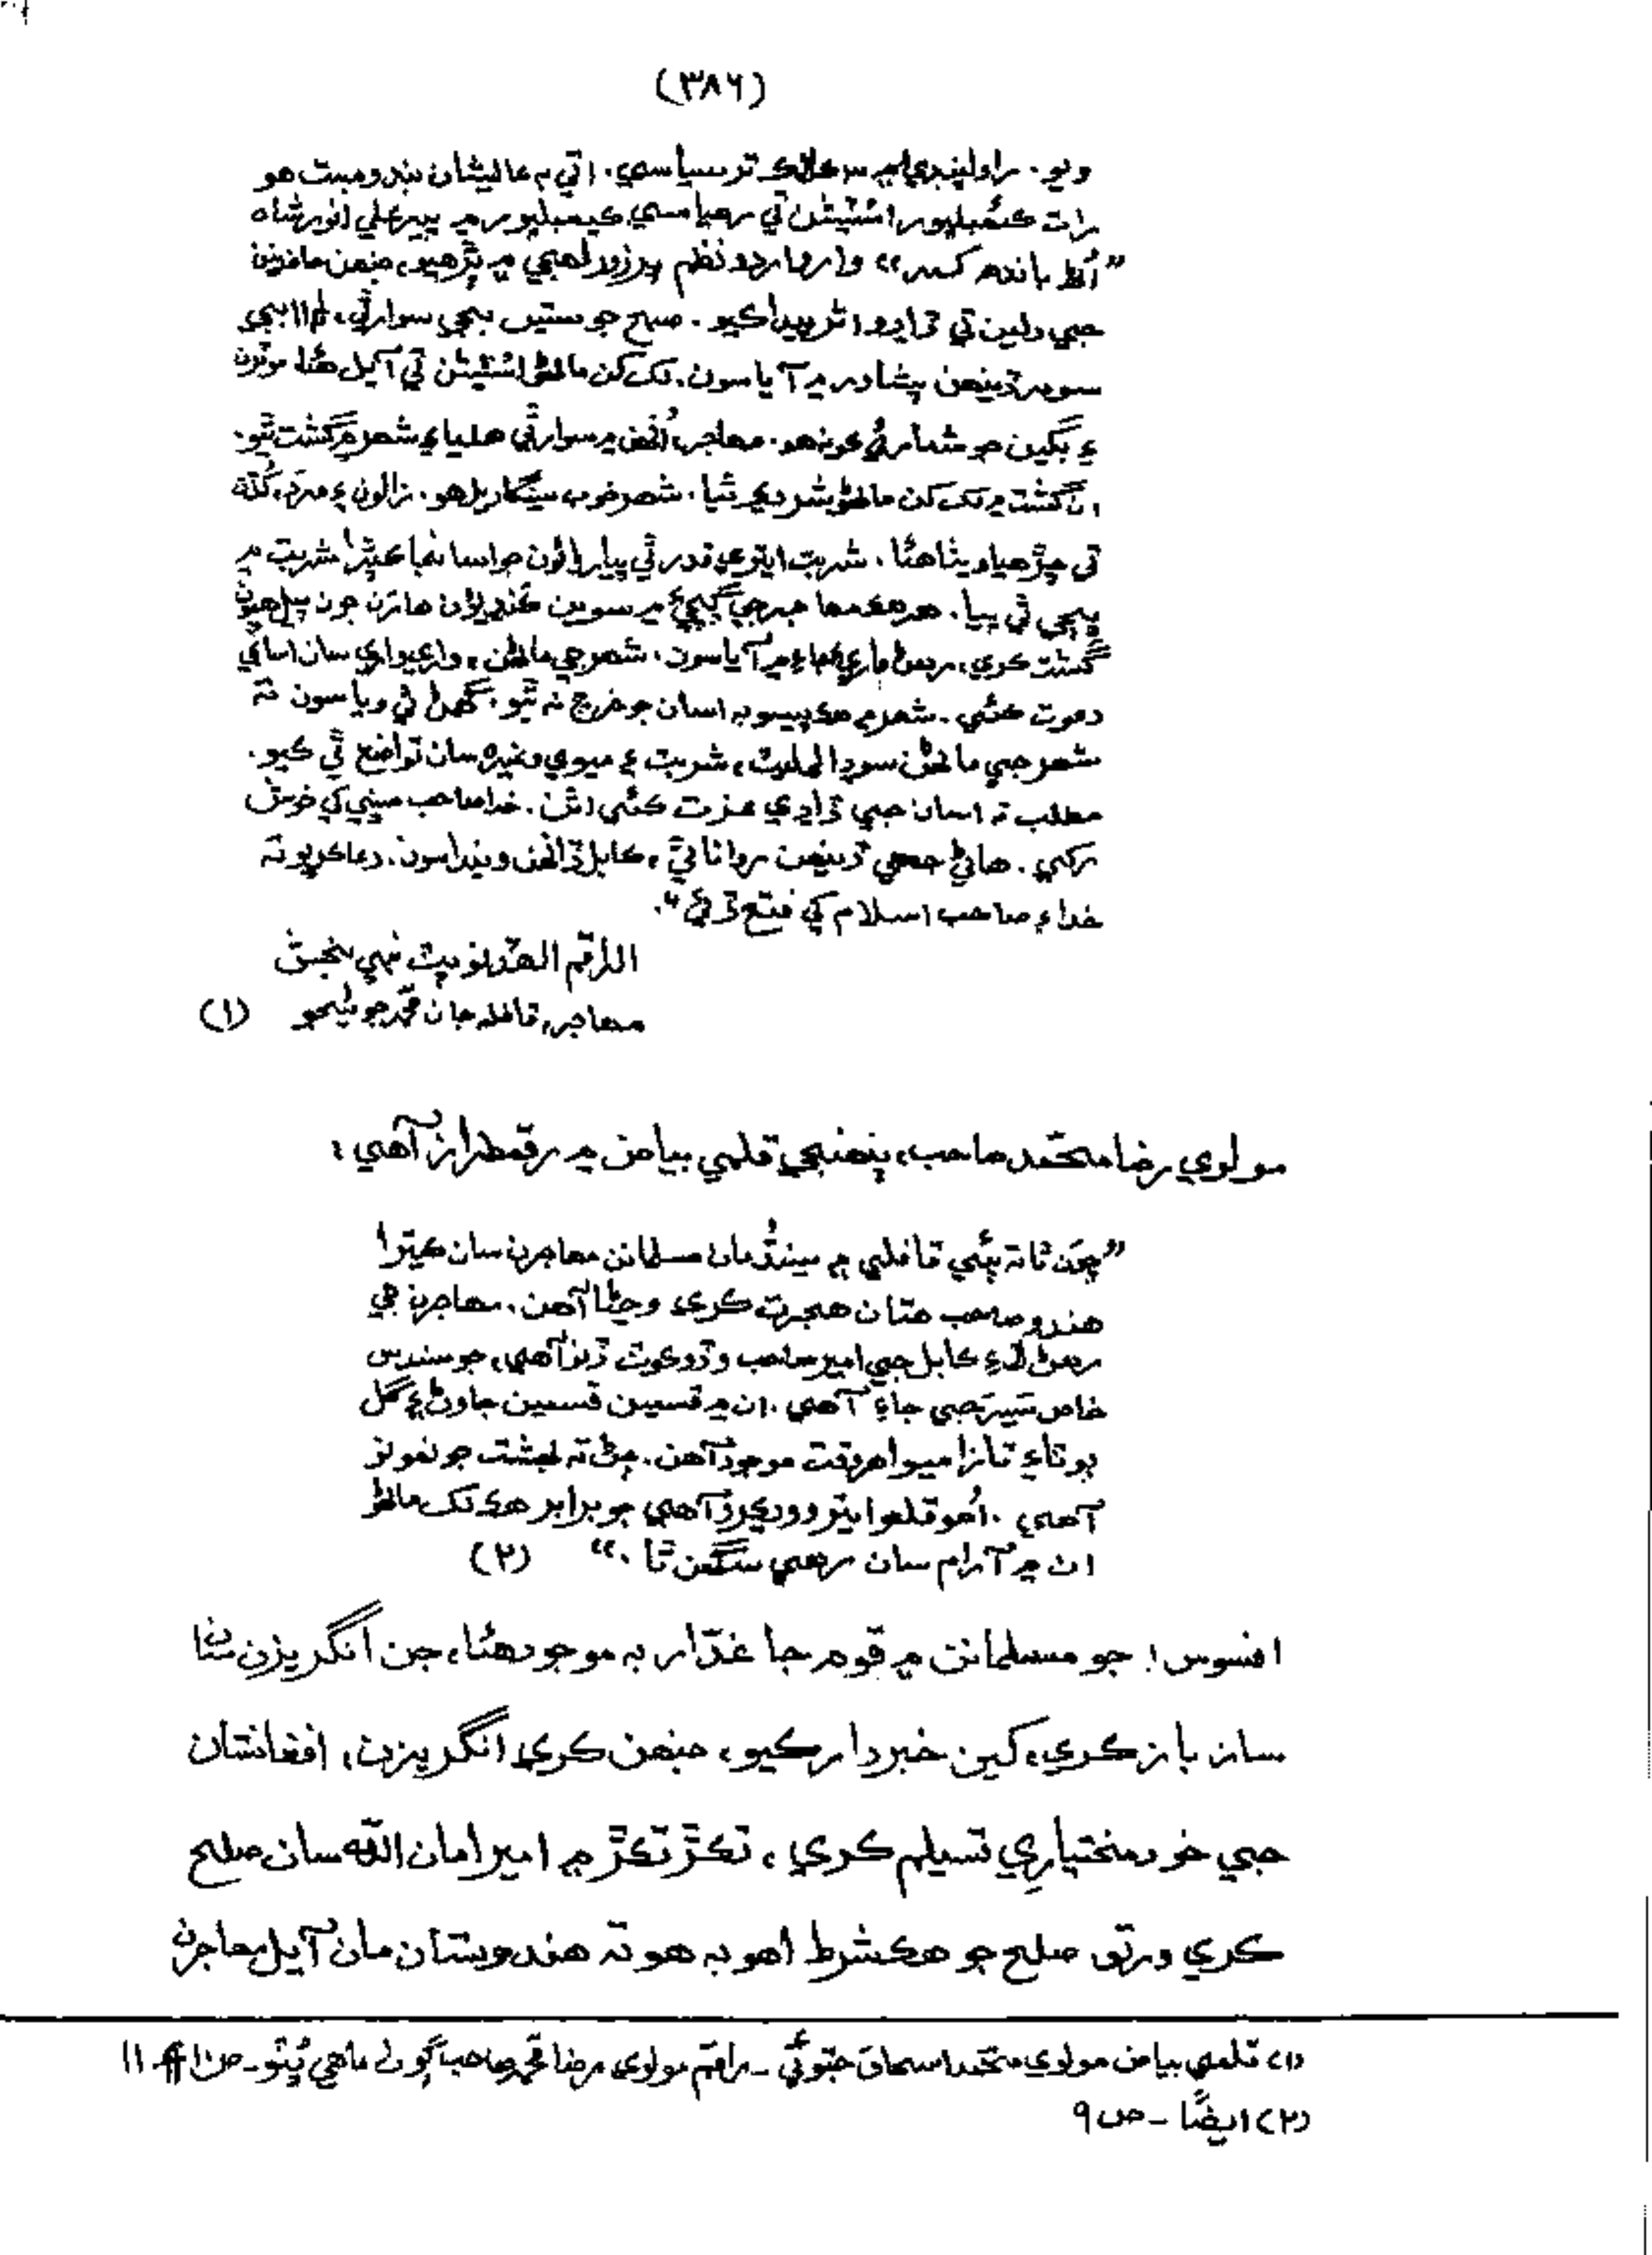 (۳۸۶)
ويو. راولپنڊي ۾ سڀ لڪ ترسياسي. اتي به عاليشان بندوبست هو
رات ڪئمبلپور اسٽيشن تي رهياسي ڪيمبلپور ۾ پير علي انور شاه
”اُٺ باندھ کمر“ وارو اردو نظم پرزور لهجي ۾ پڙهيو، جنهن حاضرين
جي دلين تي ڏاڍو اثر پيدا ڪيو. صبح جو ستين بجي سوار ٿي، ۱۱ بجي
سومر ڏينهن پشاور ۾ آياسون. لک کن ماڻهو اسٽيشن تي آيل هئا موٽرن
۽ بگين جو شمار ئي ڪونه هو. مهاجر اُنهن ۾ سوار ٿي هليا ۽ شهر ۾ گشت ٿيو.
ان گشت ۾ لک کن ماڻهو شريڪ ٿيا. شهر خوب سينگاريل هو. زالون ۽ مرد، کُڏن
تي چڙهيا ويٺا هئا. شربت ايتري قدر ٿي پياريائون جو اسان جا ڪپڙا شربت ۾
پسجي ٿي پيا. هر هڪ مهاجر جي ڳچيءَ ۾ سوين هارن جون پيل هيون
گشت ڪري، رهڻ واري جاءِ ۾ آياسون. شهر جي ماڻهن، واري واري سان اسان کي
دعوت ڪئي. شهر ۾ هڪ پيسو به اسان جو خرچ نه ٿيو. گهمڻ ٿي وياسون ته
شهر جي ماڻهن سوڊا شربت ۽ ميوي وغيره سان تواضع ٿي ڪيو.
مطلب ته اسان جي ڏاڍي عزت ڪئي اٿن. خدا صاحب سڀني کي خوش
رکي. هاڻي جمعي ڏينهن روانا ٿي، ڪابل ڏانهن وينداسون. دعا ڪريو ته
خداءِ صاحب اسلام کي فتح ڏئي“.
الراقم الهڏنو پٽ نبي بخش
مهاجر، قافله جان محمد جوڻيجو (۱)
مولوي رضا محمد صاحب، پنهنجي قلمي بياض ۾ رقمطراز آهي:
”چون ٿا ته ٻئي قافلي ۾ سينڌُ مان مسلمانن مهاجرن سان ڪيترا
هندو صاحب هتان هجرت ڪري وڃڻا آهن. مهاجرن جي
رهڻ لاءِ ڪابل جي امير صاحب وڏو ڪوٽ ڏنو آهي، جو سندس
خاص سير جي جاءِ آهي. ان ۾ قسمين قسمين جا وڻ ۽ گل
ٻوٽا ۽ تازا ميوا هر وقت موجود آهن. ڄڻ ته بهشت جو نمونو
آهي. اُهو قلعو ايترو ويڪرو آهي جو برابر هڪ لک ماڻهو
ان ۾ آرام سان رهي سگهن ٿا.“ (۲)
افسوس! جو مسلمانن ۾ قوم جا غدّار به موجود هئا، جن انگريزن سان
ساز باز ڪري، کين خبردار ڪيو، جنهن ڪري انگريزن، افغانستان
جي خودمختياري تسليم ڪري، تڪڙ تڪڙ ۾ امير امان الله سان صلح
ڪري ورتي صلح جو هڪ شرط اهو به هو ته هندوستان مان آيل مهاجرن
(۱) قلمي بياض مولوي محمد اسحاق جتوئي - راقم مولوي رضا محمد صاحب ڳوٺ ماهي ڀُٽو - ص ۱۱
(۲) ايضًا - ص ۹